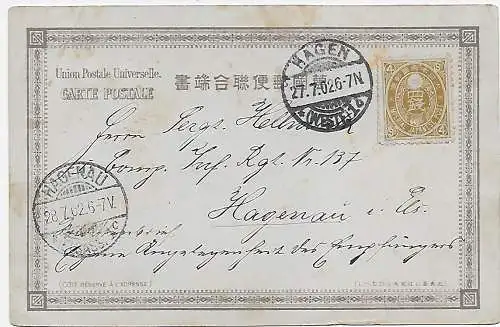 Union Postale Universelle.
CARTE POSTALE
書端合聯便郵國
HAGEN
27.7.02.6-7N
(WESTF.)1
Herrn Sergt.
Comp. Inf. Rgt. No. 137
Hagenau i. Els.
HAGENAU
28.7.02.6-7V.
Soldatenbrief
Eigene Angelegenheit des Empfängers
(CÔTÉ RÉSERVÉ À L'ADRESSE)